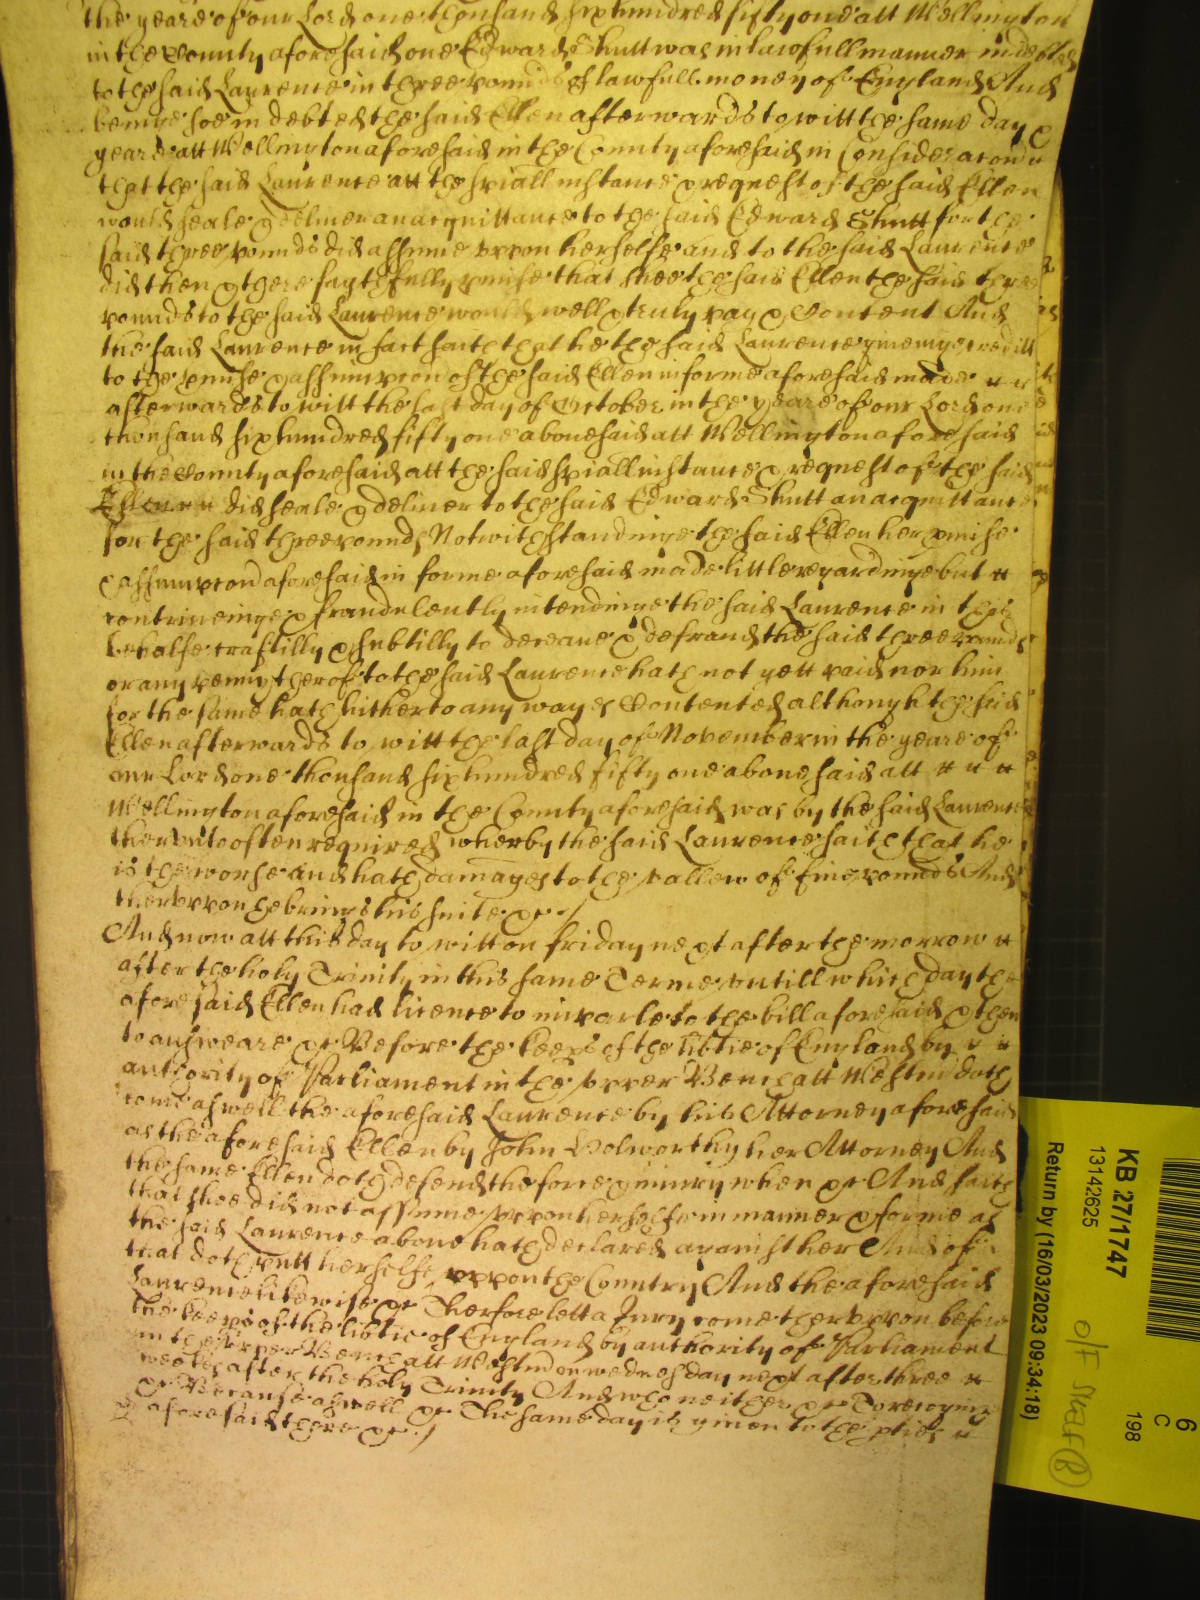 the yeare of our Lord one thousand six hundred fifty one att Wellington
in the County aforesaid one Edward Shutt was in lawfull manner indebted
to the said Laurence in three pounds of lawfull money of England And
beinge soe indebted the said Ellen afterwards to witt the same day &
yeare att Wellington aforesaid in the County aforesaid in Consideracon
that the said Laurence att the spiall instance & request of the said Ellen
would seale & deliver an acquittance to the said Edward Shutt for the
said three pounds did assume uppon herselfe and to the said Laurence
did then & there faythfully pmise that shee the said Ellen the said three
pounds to the said Laurence would well & truly pay & Content And
the said Laurence in fact saith that he the said Laurence giveinge creditt
to the pmise & assumpcon of the said Ellen in forme aforesaid made
afterwards to witt the last day of October in the yeare of our Lord one
thousand six hundred fifty one abovesaid att Wellington aforesaid
in the County aforesaid att the said spiall instance & request of the said
Ellen did seale & deliver to the said Edward Shutt an acquittance
for the said three pounds Notwithstandinge the said Ellen her pmise
& assumpcon aforesaid in forme aforesaid made little regardinge but
contriveinge & fraudulently intendinge the said Laurence in this
behalfe craftilly & subtilly to deceave & defraud the said three pounds
or any penny therof to the said Laurence hath not yett paid nor him
for the same hath hitherto any wayes Contented although the said
Ellen afterwards to witt the last day of November in the yeare of
our Lord one thousand six hundred fifty one abovesaid att
Wellington aforesaid in the County aforesaid was by the said Laurence
therunto often required wherby the said Laurence saith that he
is the worse and hath damages to the vallew of five pounds And
theruppon he brings his suite &c
And now att this day to witt on friday next after the morrow
after the holy Trinity in this same Terme untill which day the
aforesaid Ellen had licence to imparle to the bill aforesaid & then
to answeare &c Before the keeps of the libtie of England by
authority of Parliament in the upper Bench att Westm doth
come aswell the aforesaid Laurence by his Attorney aforesaid
as the aforesaid Ellen by John Wolworthy her Attorney And
the same Ellen doth defend the force & iniury when &c And saith
that shee did not assume uppon herselfe in manner & forme as
the said Laurence above hath declared against her And of
that doth putt herselfe uppon the Country And the aforesaid
Laurence likewise &c Therfore lett a Jury come theruppon before
the keeps of the libtie of England by authority of Parliament
in the upper Bench att Westm on wednesday next after three
weekes after the holy Trinity And who neither &c To recognize
&c Because aswell &c The same day is given to the pties
aforesaid there &c
KB 27/1747
13142625
Return by (16/03/2023 09:34:18)
6
C
198